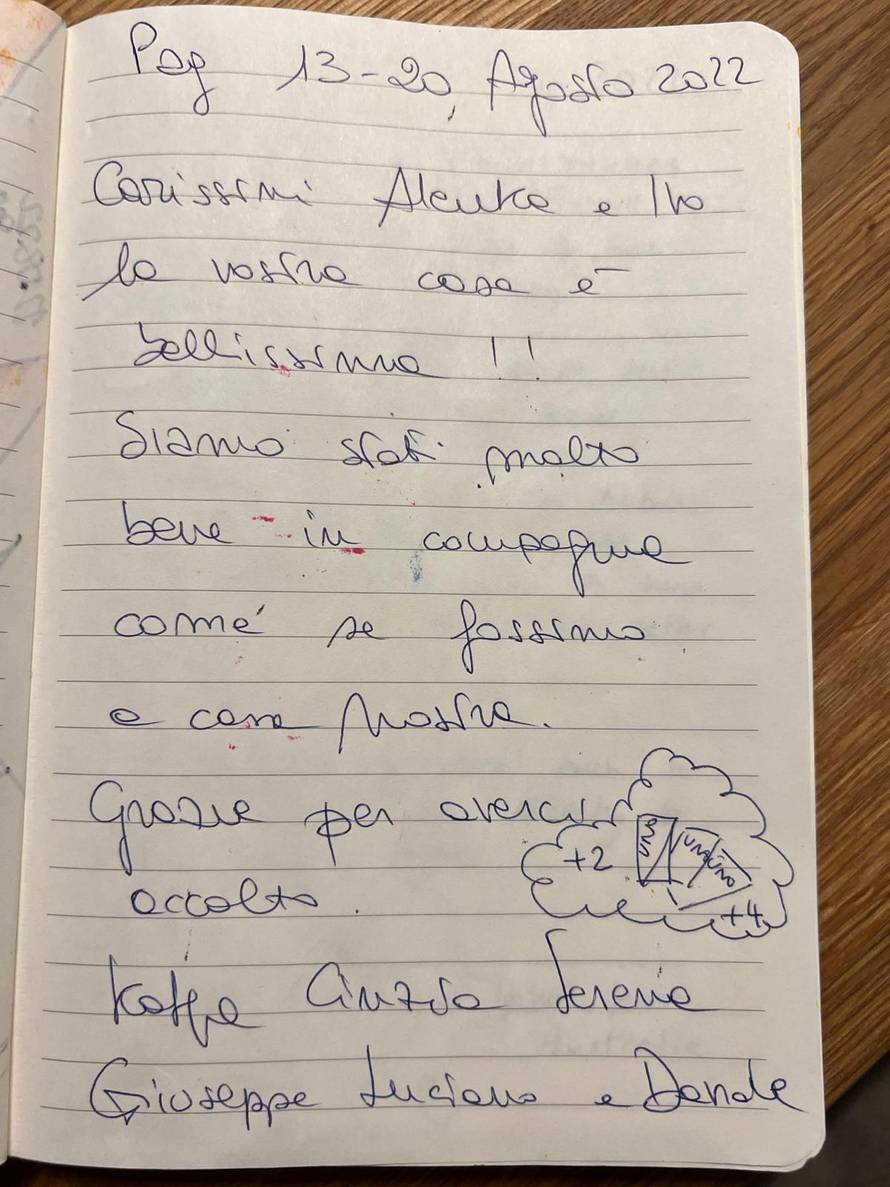 Pag 13-20, Agosto 2022
Carissimi Alenka e Ivo
la vostra casa è
bellissima !!
Siamo stati molto
bene in compagnia
comé se fossimo
a casa nostra.
Grazie per averci
accolto.
+2 UNO UNO UNO +4
Cinzia Serena
Giuseppe Luciano e Davide